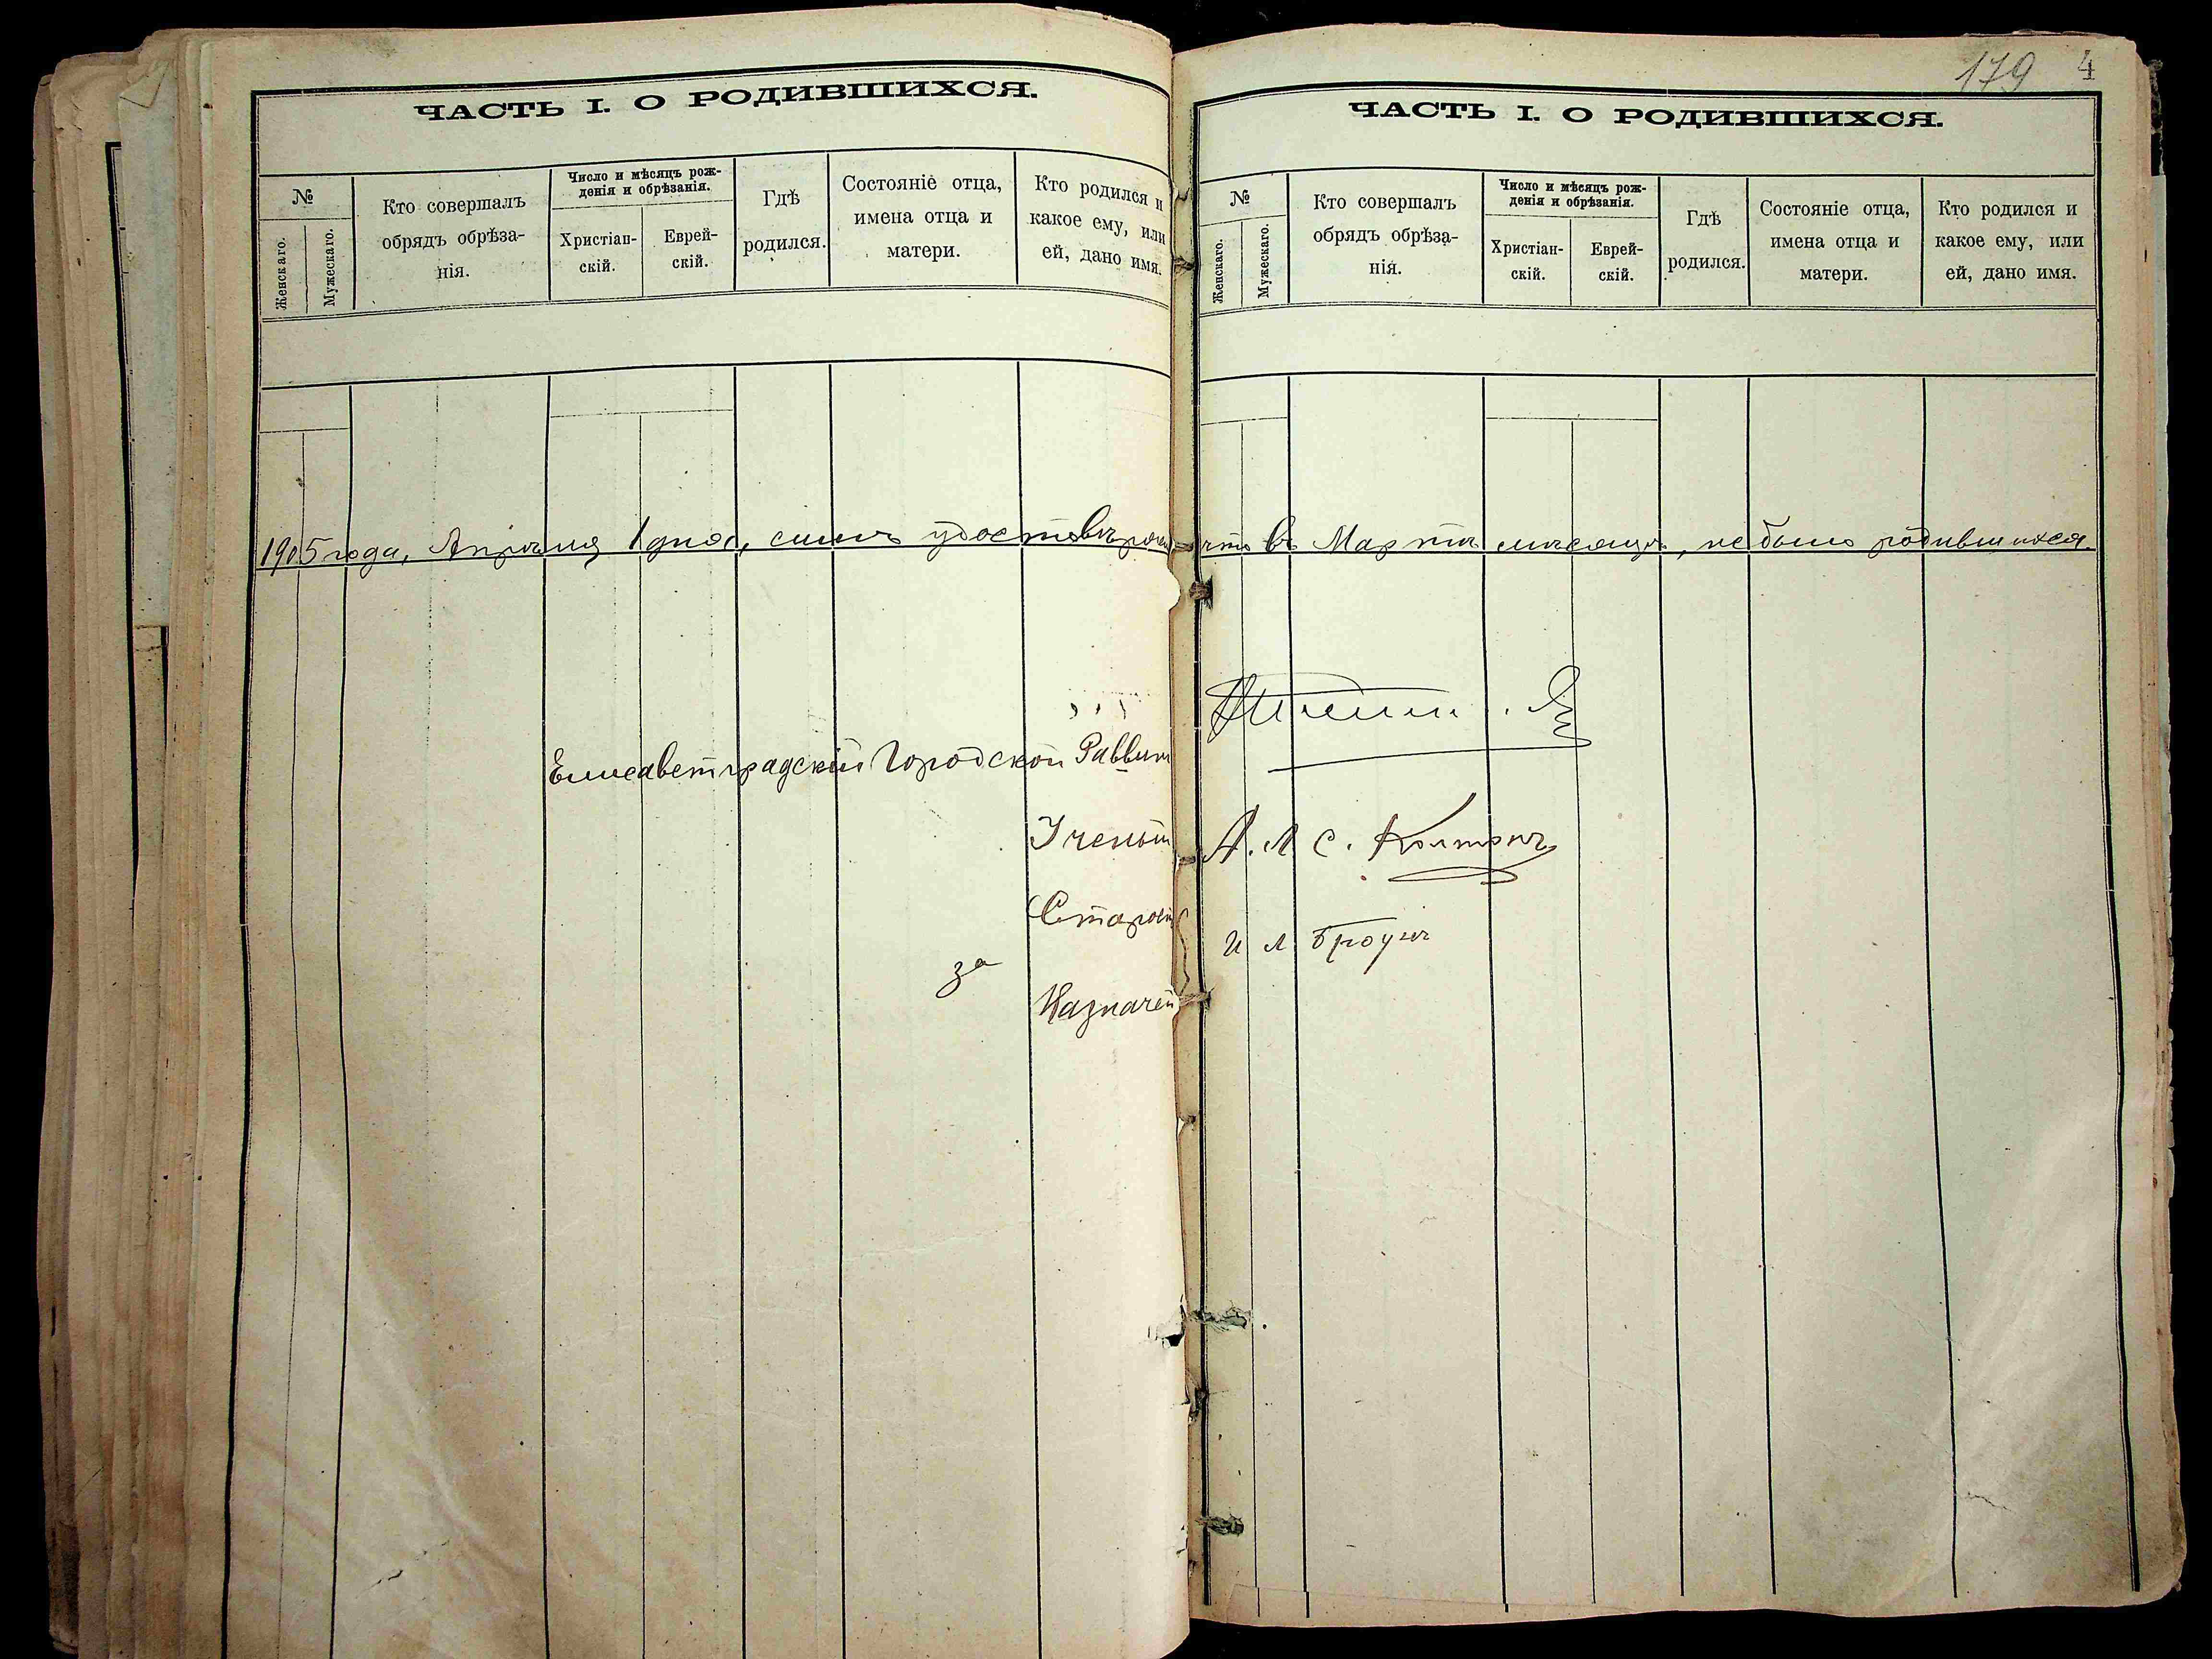 ЧАСТЬ I. О РОДИВШИХСЯ.
№
Женскаго.
Мужескаго.
Кто совершалъ
обрядъ обрѣза-
нія.
Число и мѣсяцъ рож-
денія и обрѣзанія.
Христіан-
скій.
Еврей-
скій.
Гдѣ
родился.
Состояніе отца,
имена отца и
матери.
Кто родился и
какое ему, или
ей, дано имя.
179 4
ЧАСТЬ I. О РОДИВШИХСЯ.
№
Женскаго.
Мужескаго.
Кто совершалъ
обрядъ обрѣза-
нія.
Число и мѣсяцъ рож-
денія и обрѣзанія.
Христіан-
скій.
Еврей-
скій.
Гдѣ
родился.
Состояніе отца,
имена отца и
матери.
Кто родился и
какое ему, или
ей, дано имя.
1905 года, Апрѣля 1 дня, симъ что въ Мартѣ мѣсяцѣ, не было родившихся.
Елисаветградскій Городской Раввин
Ученый А. Л С.
Старост И Л
за
Казначей